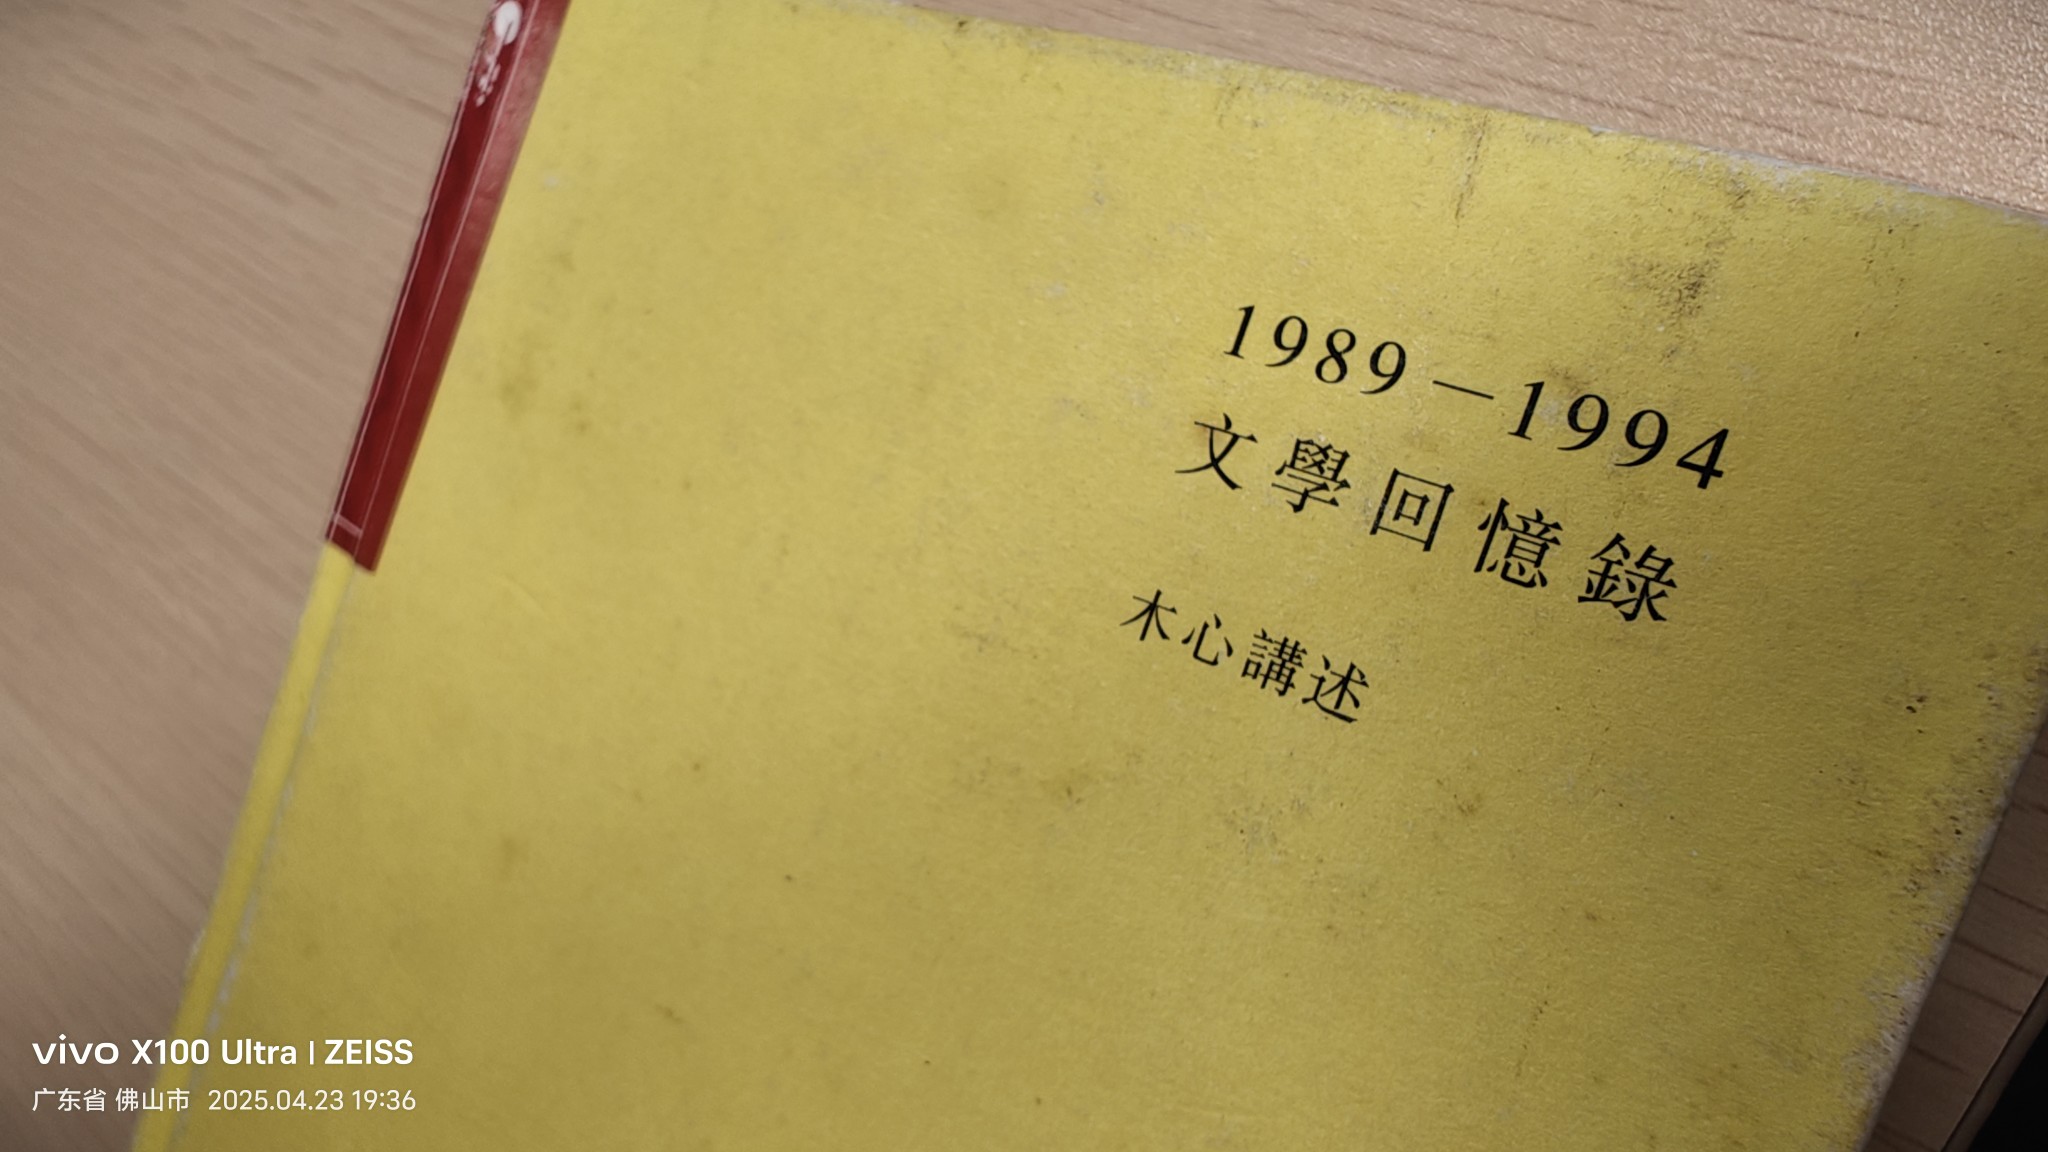 1989—1994
文學回憶錄
木心講述
vivo X100 Ultra | ZEISS
广东省 佛山市 2025.04.23 19:36